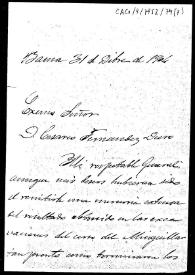 CACF/9/7952/79(1)
Baena 31 de Dibre de 1904
Excmo Señor
D. Cesareo Fernandez Duro
Mi respetable General
aunque mis deseos hubieran sido
el remitirle una memoria extensa
del resultado obtenido en las exca
vaciones del cerro del Minguillar
tan pronto como terminaron los